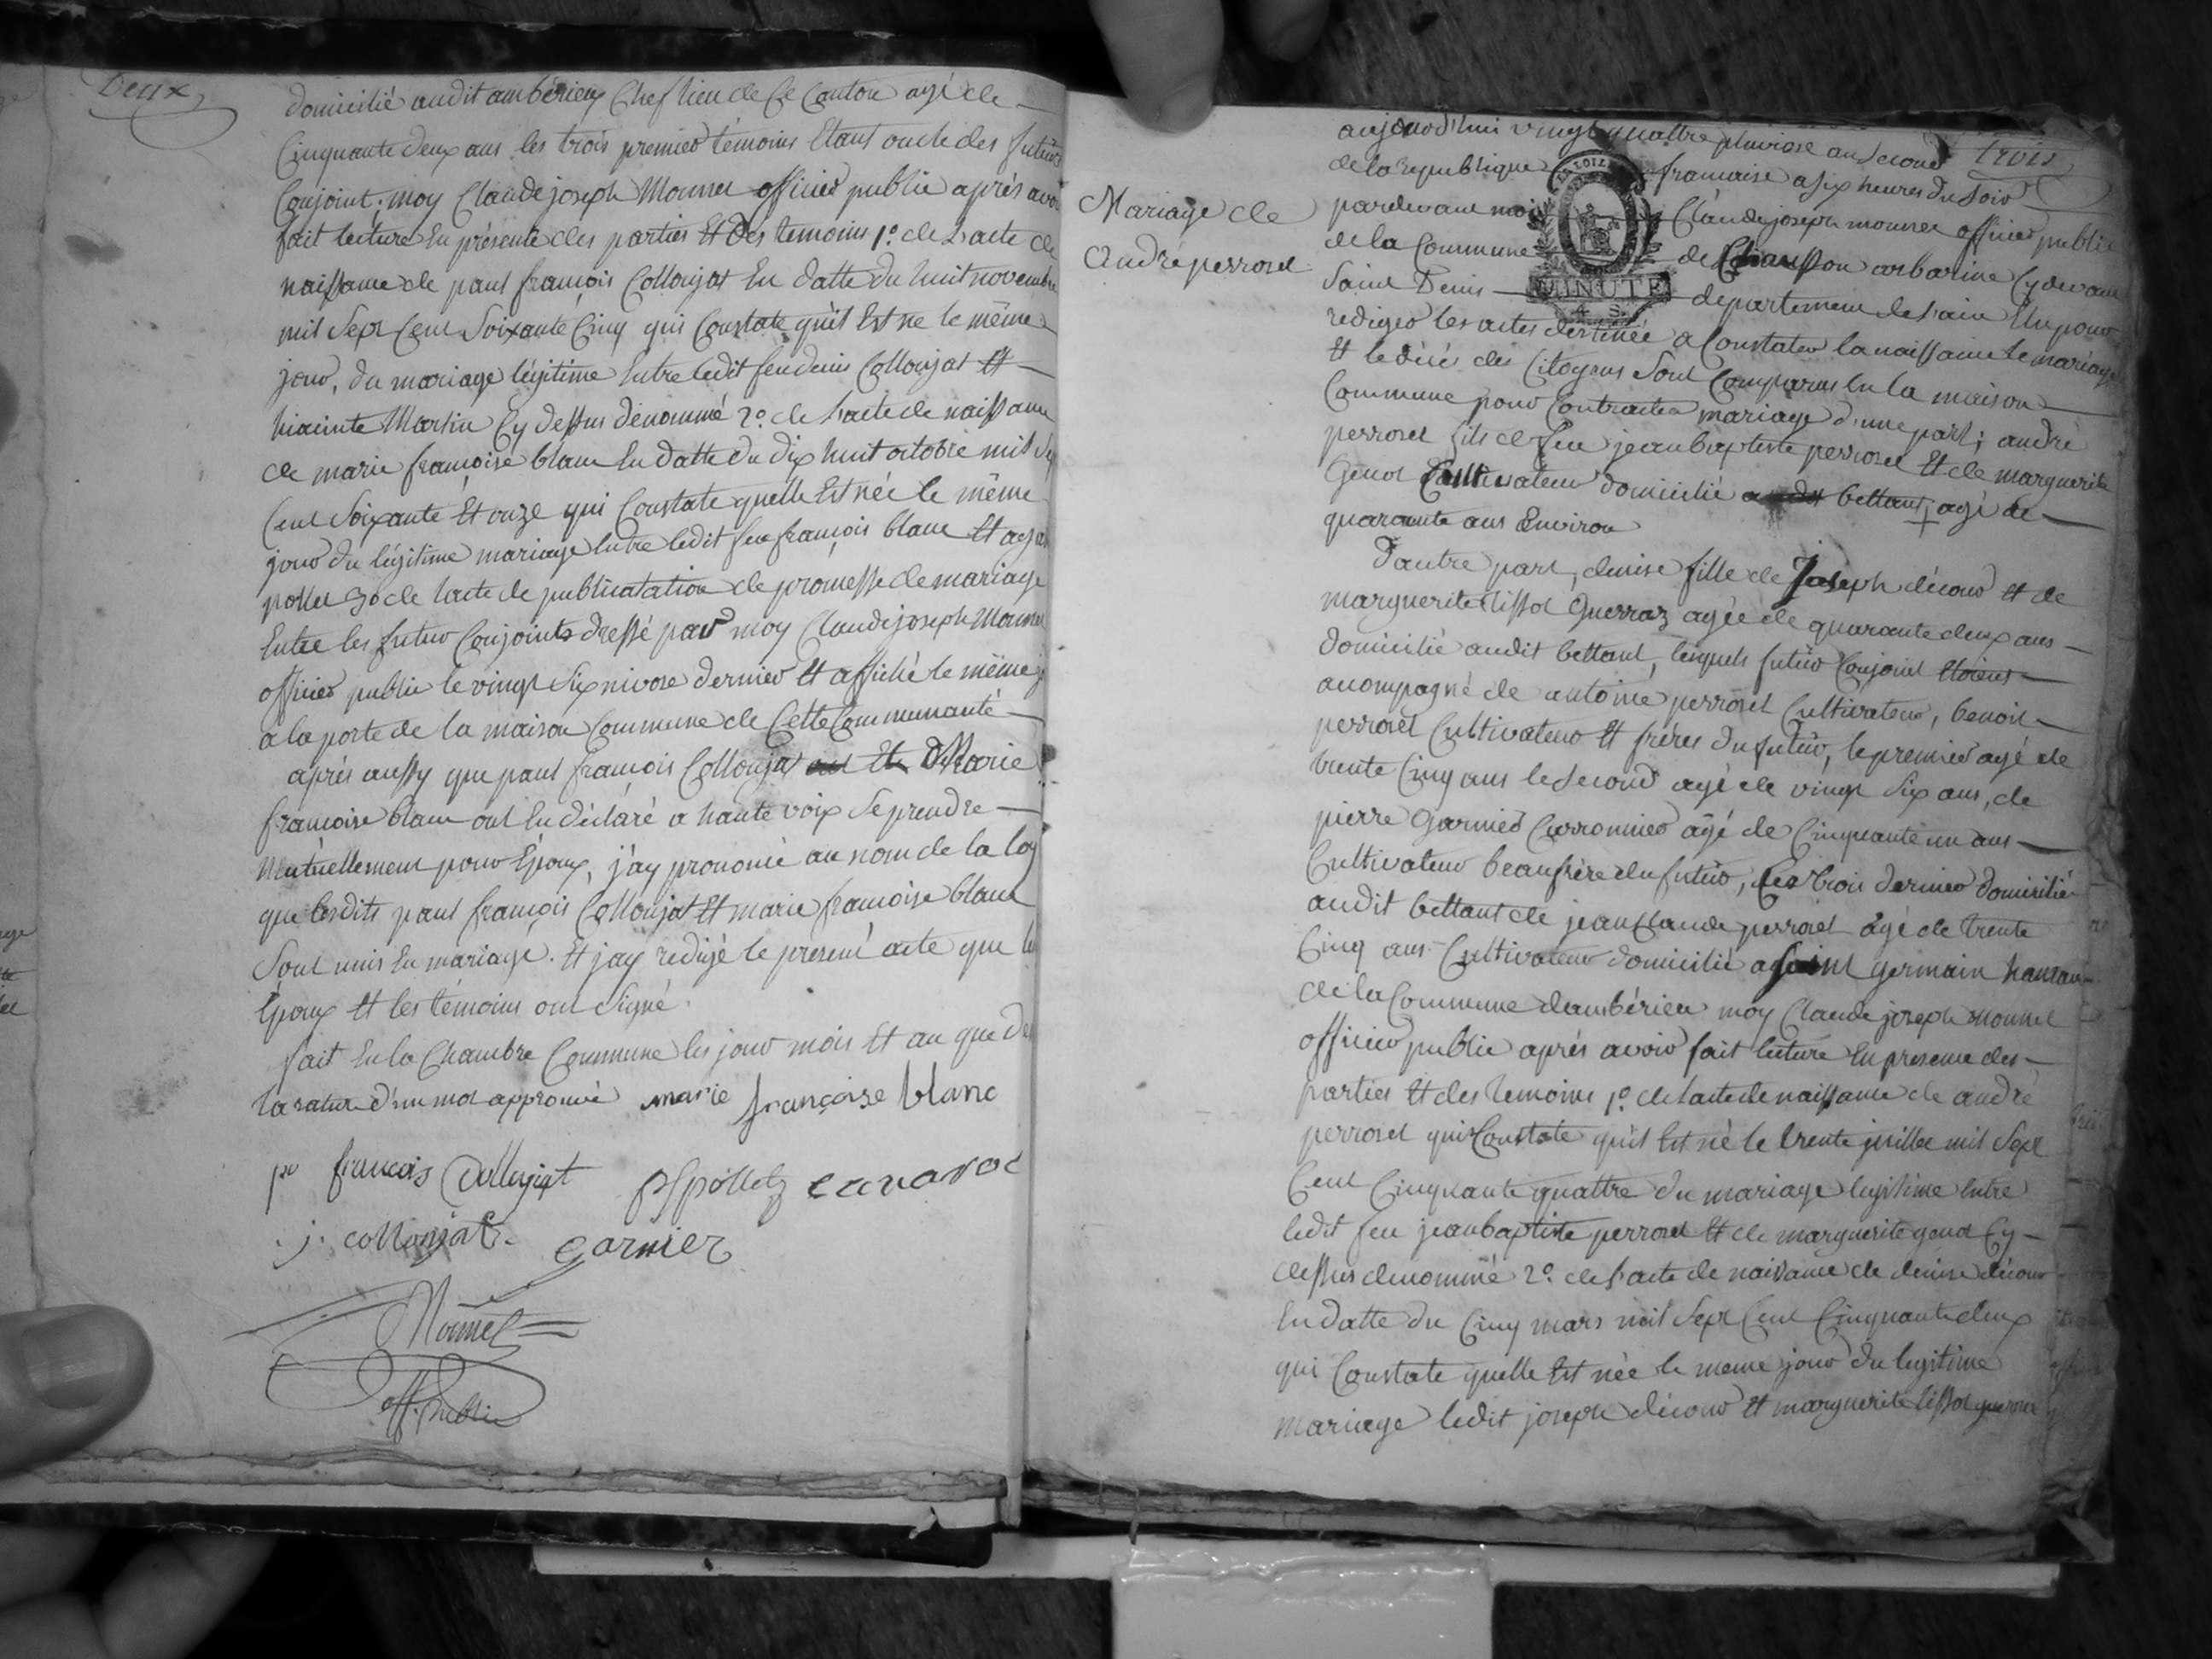 Deux
domicilié audit ambérieux Chef lieu de Ce Canton agé de
Cinquante deux ans les trois premier témoins Etant oncle des futurs
Conjoint. moy Claude joseph Monnet officier public après avoir
fait lecture En présente des parties Et des temoins 1º. de L'acte de
naissance de paul françois Collonjat En datte du huit novembre
mil Sept Cent Soixante Cinq qui Constate quil Est ne le même
jour, du mariage légitime Entre ledit feu denis Collonjat Et
hiacinte Martin Cy dessus dénommé 2º. de L'acte de naissance
de marie françoise blanc En datte du dix huit octobre mil Sept
Cent Soixante Et onze qui Constate quelle Est née le même
jour du légitime mariage Entre ledit feu françois blanc Et
pollet 3º de lacte de publicatation de promesse de mariage
Entre les futur Conjoints dressé par moy Claude joseph Monnet
officier public le vingt Six nivose dernier Et affiché le même
a la porte de la maison Commune de Cette Communauté
après aussy que paul françois Collonjat Et Marie
françoise blanc ont En déclaré a haute voix Se prendre
Mutuellement pour Époux, j'ay prononcé au nom de la loy
que lesdits paul françois Collonjat Et marie françoise blanc
Sont unis En mariage. Et jay redigé le présent acte que les
Époux Et les témoins ont Signé.
fait En la Chambre Commune les jour mois Et an que de
la rature d'un mot approuvé marie françoise blanc
françois Collonjat pollet
j. collonjat garnier
Monnet
off. Public
trois
Mariage de
André perroset
aujourd'hui vingt quattre pluviose an Second
de la republique francaise a six heures du Soir
pardevant moi Claude joseph monnet officier public
de la Commune de Chausson arbarine Cy devant
Saint Denis departement de L'ain Elu pour
rediger les actes destinée a Constater la naissance le mariage
Et le décé des Citoyens Sont Comparus En la maison
Commune pour Contracter mariage d'une part; andré
perroset fils de feu jean baptiste perroset Et de marguerite
Genod Cultivateur domicilié bettant agé de
quarante ans Environ
D'autre part, denise fille de Joseph décour Et de
marguerite tissot Guerraz agée de quarante deux ans
domicilié audit bettant, lesquels futur Conjoint Etoient
acompagné de antoine perroset Cultivateur, benoit
perroset Cultivateur Et frères du futur, le premier agé de
trente Cinq ans le Second agé de vingt Six ans, de
pierre Garnier agé de Cinquante un ans
Cultivateur beaufrère du futur, Les trois dernier domicilié
audit bettant de jean Claude perroset agé de trente
Cinq ans Cultivateur domicilié a Saint germain hameau
de la Commune dambérieu moy Claude joseph monnet
officier public après avoir fait lecture En presence des
parties Et des temoins 1º. de lacte de naissance de andré
perroset qui Constate quil Est né le trente juillet mil Sept
Cent Cinquante quattre du mariage legitime Entre
ledit feu jean baptiste perroset Et de marguerite genod Cy
dessus denommé 2º. de L'acte de naissance de denise décour
En datte du Cinq mars mil Sept Cent Cinquante deux
qui Constate quelle Est née le meme jour du legitime
mariage ledit joseph décour Et marguerite tissot guerraz
MINUTE
4 S.